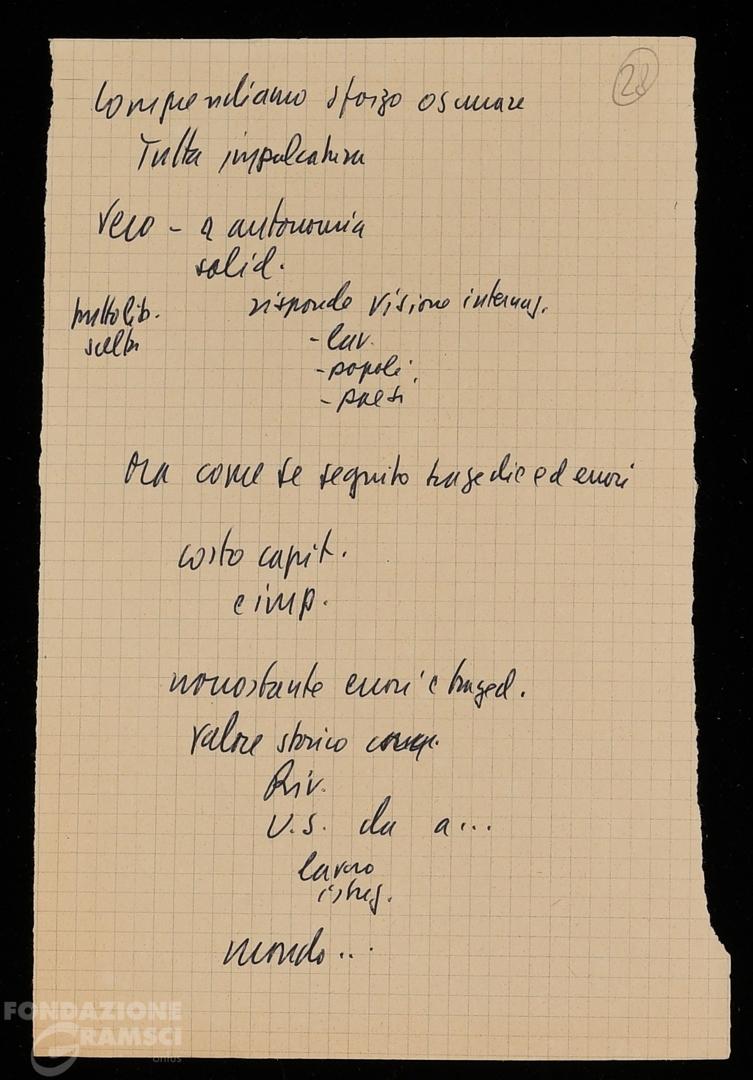 28
Comprendiamo sforzo oscurare
Tutta impalcatura
Vero - a autonomia
solid.
risponde visione internaz.
- lav.
- popoli
- paesi
Ora come se seguito tragedie ed errori
costo capit.
e imp.
nonostante errori e traged.
valore storico
Riv.
U.S. da a...
lavoro
istruz.
mondo...
FONDAZIONE
GRAMSCI
onlus